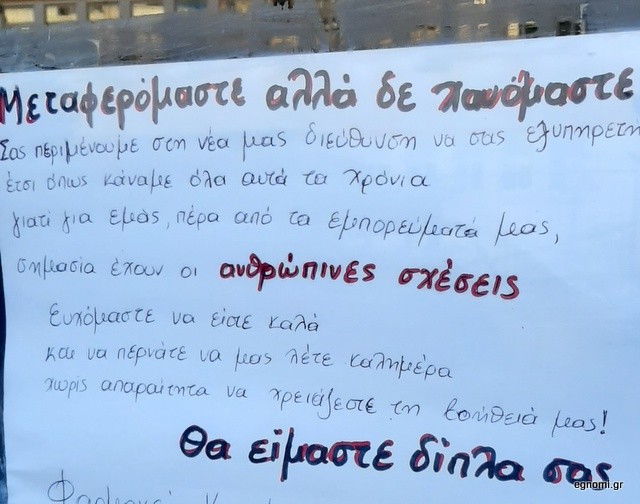 Μεταφερόμαστε αλλά δε χανόμαστε
Σας περιμένουμε στη νέα μας διεύθυνση να σας εξυπηρετή
έτσι όπως κάναμε όλα αυτά τα χρόνια
γιατί για εμάς, πέρα από τα εμπορεύματά μας,
σημασία έχουν οι ανθρώπινες σχέσεις
Ευχόμαστε να είστε καλά
και να περνάτε να μας λέτε καλημέρα
χωρίς απαραίτητα να χρειάζεστε τη βοήθειά μας!
Θα είμαστε δίπλα σας
egnomi.gr